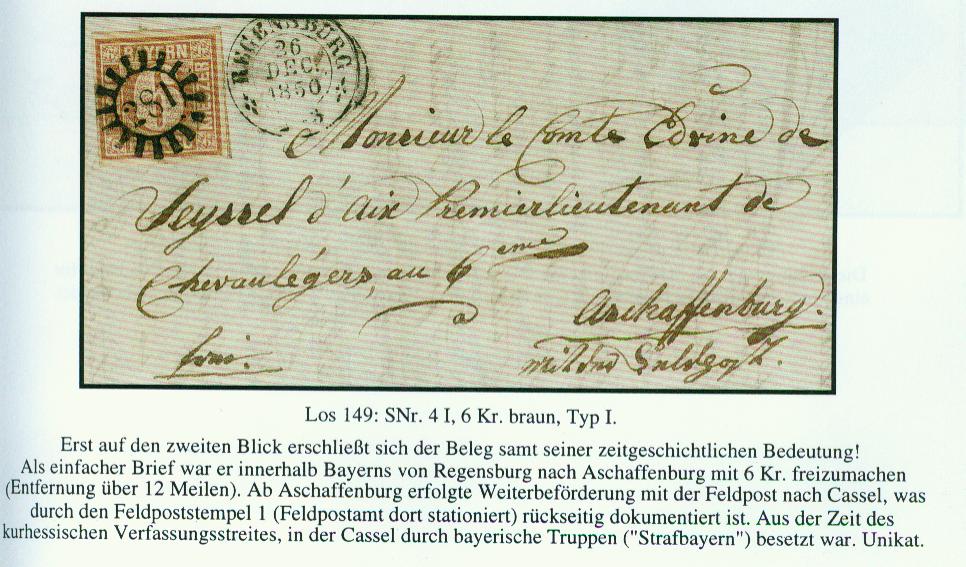 BAYERN
281
REGENSBURG
26
DEC.
1850
Monsieur le Comte Edvine de
Seyssel d'Aix Premierlieutenant de
Chevaulégers, au 6 eme
à
Aschaffenburg.
frei.
mit der Feldpost.
Los 149: SNr. 4 I, 6 Kr. braun, Typ I.
Erst auf den zweiten Blick erschließt sich der Beleg samt seiner zeitgeschichtlichen Bedeutung!
Als einfacher Brief war er innerhalb Bayerns von Regensburg nach Aschaffenburg mit 6 Kr. freizumachen
(Entfernung über 12 Meilen). Ab Aschaffenburg erfolgte Weiterbeförderung mit der Feldpost nach Cassel, was
durch den Feldpoststempel 1 (Feldpostamt dort stationiert) rückseitig dokumentiert ist. Aus der Zeit des
kurhessischen Verfassungsstreites, in der Cassel durch bayerische Truppen ("Strafbayern") besetzt war. Unikat.